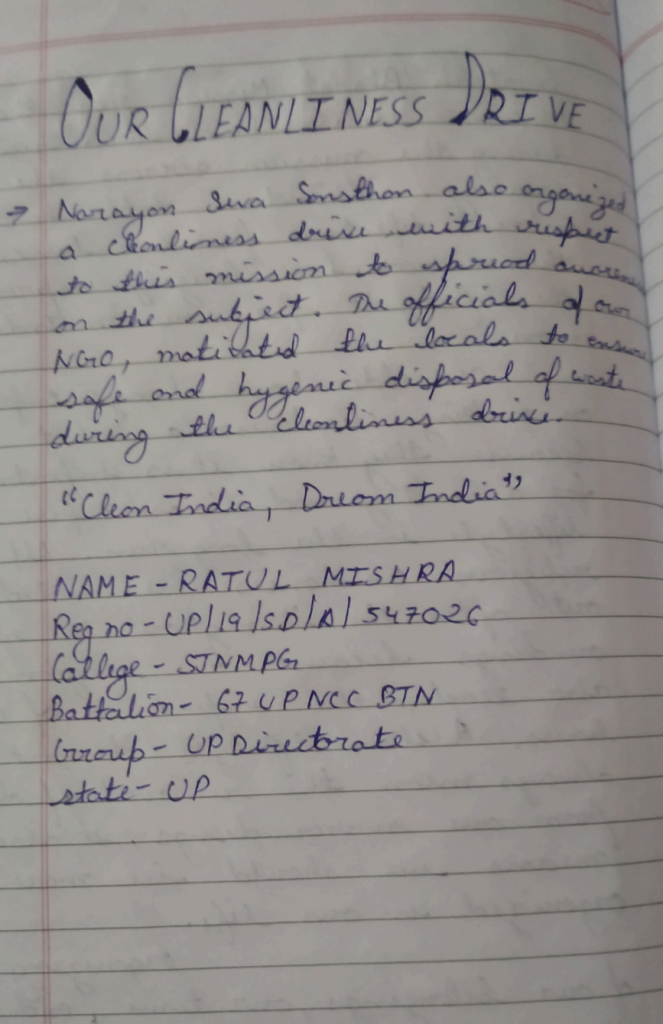 OUR CLEANLINESS DRIVE
→ Narayan Seva Sansthan also organized
a cleanliness drive with respect
to this mission to spread
on the subject. The officials of our
NGO, motivated the locals to ensure
safe and hygenic disposal of waste
during the cleanliness drive.
"Clean India, Dream India"
NAME - RATUL MISHRA
Reg no - UP/19/SD/A/547026
College - SJNMPG
Battalion - 67 UP NCC BTN
Group - UP Directorate
state - UP